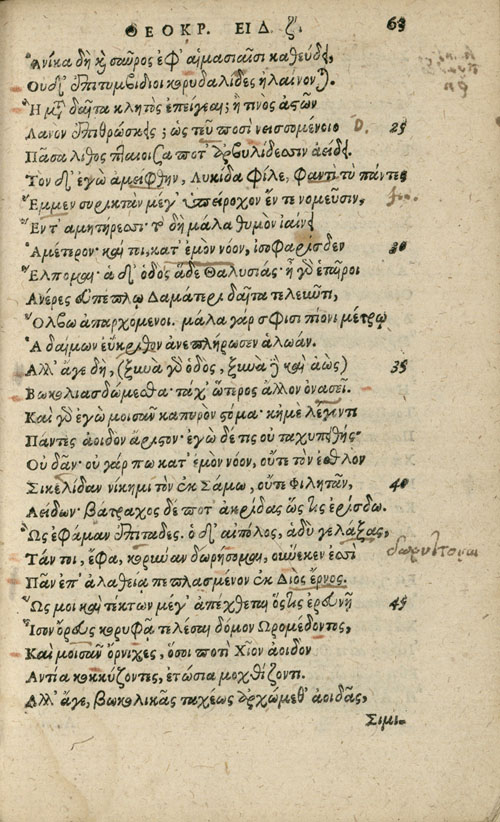 ΘΕΟΚΡ. ΕΙΔ. ζ. 63
Ἁνίκα δὴ καὶ σαῦρος ἐφ' αἱμασιαῖσι καθεύδει,
Οὐδ' ἐπιτυμβίδιοι κορυδαλίδες ἠλαίνονται.
Ἢ μετὰ δαῖτα κλητὸς ἐπείγεαι; ἤ τινος ἀστῶν
Λανὸν ἐπιθρώσκεις; ὥς τευ ποσὶ νεισσομένοιο 25
Πᾶσα λίθος πταίοισα ποτ' ἀρβυλίδεσσιν ἀείδει.
Τὸν δ' ἐγὼ ἀμείφθην, Λυκίδα φίλε, φαντί τυ πάντες
Ἔμμεν συρικτὰν μέγ' ὑπείροχον ἔν τε νομεῦσιν,
Ἔν τ' ἀμητήρεσσι· τὸ δὴ μάλα θυμὸν ἰαίνει
Ἁμέτερον· καί τοι, κατ' ἐμὸν νόον, ἰσοφαρίσδεν 30
Ἔλπομαι· ἁ δ' ὁδὸς ἅδε Θαλυσιάς· ἦ γὰρ ἑταῖροι
Ἀνέρες εὐπέπλῳ Δαμάτερι δαῖτα τελεῦντι,
Ὄλβω ἀπαρχόμενοι. μάλα γάρ σφισι πίονι μέτρῳ
Ἁ δαίμων εὔκριθον ἀνεπλήρωσεν ἀλωάν.
Ἀλλ' ἄγε δὴ, (ξυνὰ γὰρ ὁδὸς, ξυνὰ δὲ καὶ ἀὼς) 35
Βωκολιασδώμεσθα· τάχ' ὥτερος ἄλλον ὀνασεῖ.
Καὶ γὰρ ἐγὼ μοισᾶν καπυρὸν στόμα· κἠμὲ λέγοντι
Πάντες ἀοιδὸν ἄριστον· ἐγὼ δέ τις οὐ ταχυπειθής·
Οὐ δᾶν· οὐ γάρ πω κατ' ἐμὸν νόον, οὔτε τὸν ἐσθλὸν
Σικελίδαν νίκημι τὸν ἐκ Σάμω, οὔτε Φιλητᾶν, 40
Ἀείδων· βάτραχος δὲ ποτ' ἀκρίδας ὥς τις ἐρίσδω.
Ὣς ἐφάμαν ἐπιταδές. ὁ δ' αἰπόλος, ἁδὺ γελάξας,
Τάν τοι, ἔφα, κορύναν δωρήσομαι, οὕνεκεν ἐσσὶ
Πᾶν ἐπ' ἀλαθείᾳ πεπλασμένον ἐκ Διὸς ἔρνος.
Ὥς μοι καὶ τέκτων μέγ' ἀπέχθεται ὅστις ἐρευνῇ 45
Ἶσον ὄρευς κορυφᾷ τελέσαι δόμον Ὠρομέδοντος,
Καὶ μοισᾶν ὄρνιχες, ὅσοι ποτὶ Χῖον ἀοιδὸν
Ἀντία κοκκύζοντες, ἐτώσια μοχθίζοντι.
Ἀλλ' ἄγε, βωκολικᾶς ταχέως ἀρχώμεθ' ἀοιδᾶς,
Σιμι-